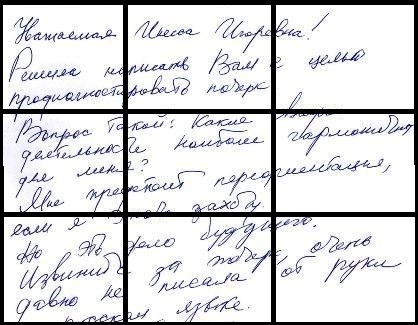 Уважаемая Инесса Игоревна!
Решила написать Вам с целью
продиагностировать почерк
Вопрос такой: Какие
деятельности наиболее гармоничны
для меня?
Мне предстоит переориентация,
если я этого захочу.
Но это дело будущего.
Извините за почерк, очень
давно не писала от руки
русском языке.